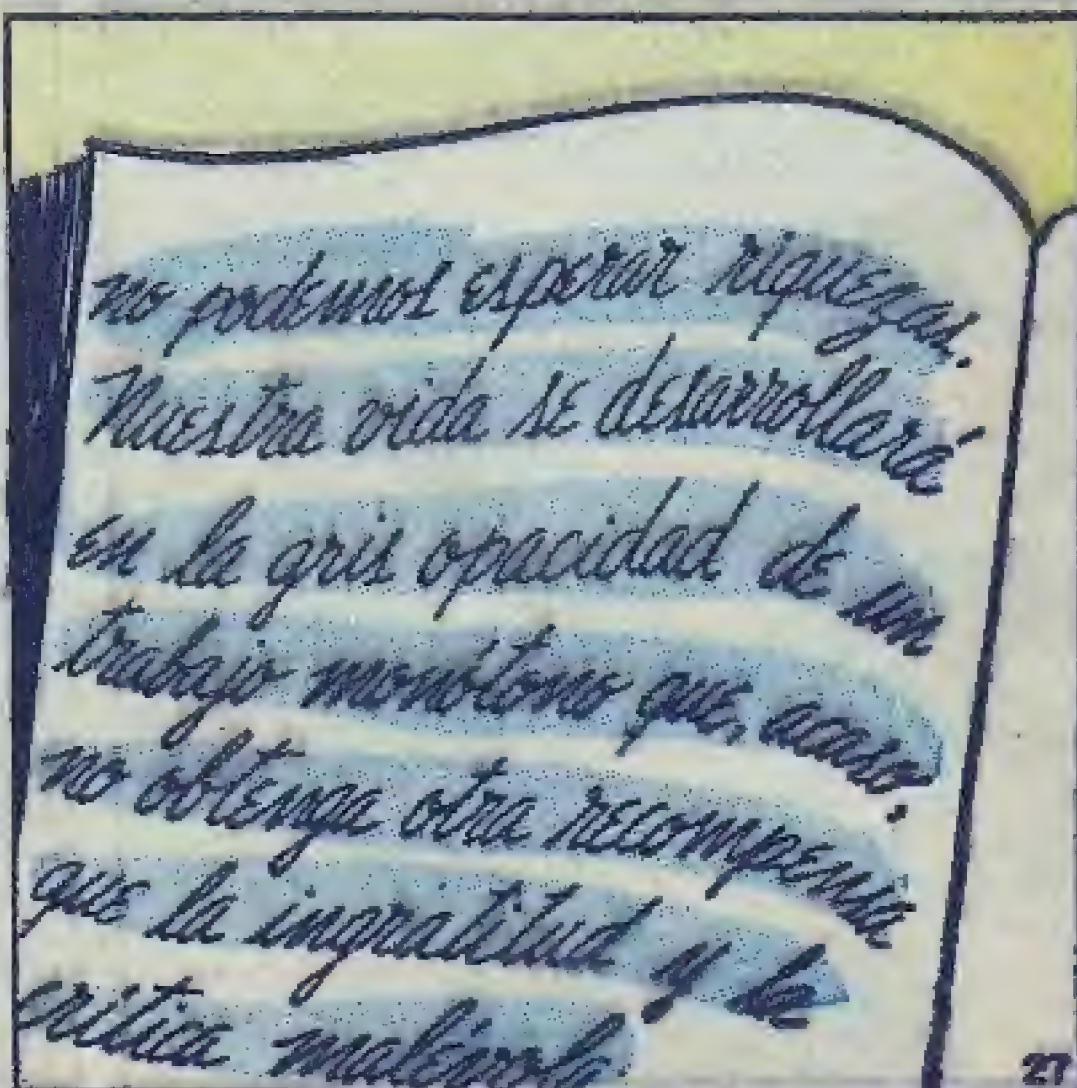 no podemos esperar riquezas.
Nuestra vida se desarrollará
en la gris opacidad de un
trabajo monótono que, acaso,
no obtenga otra recompensa
que la ingratitud y la
crítica malévola
27